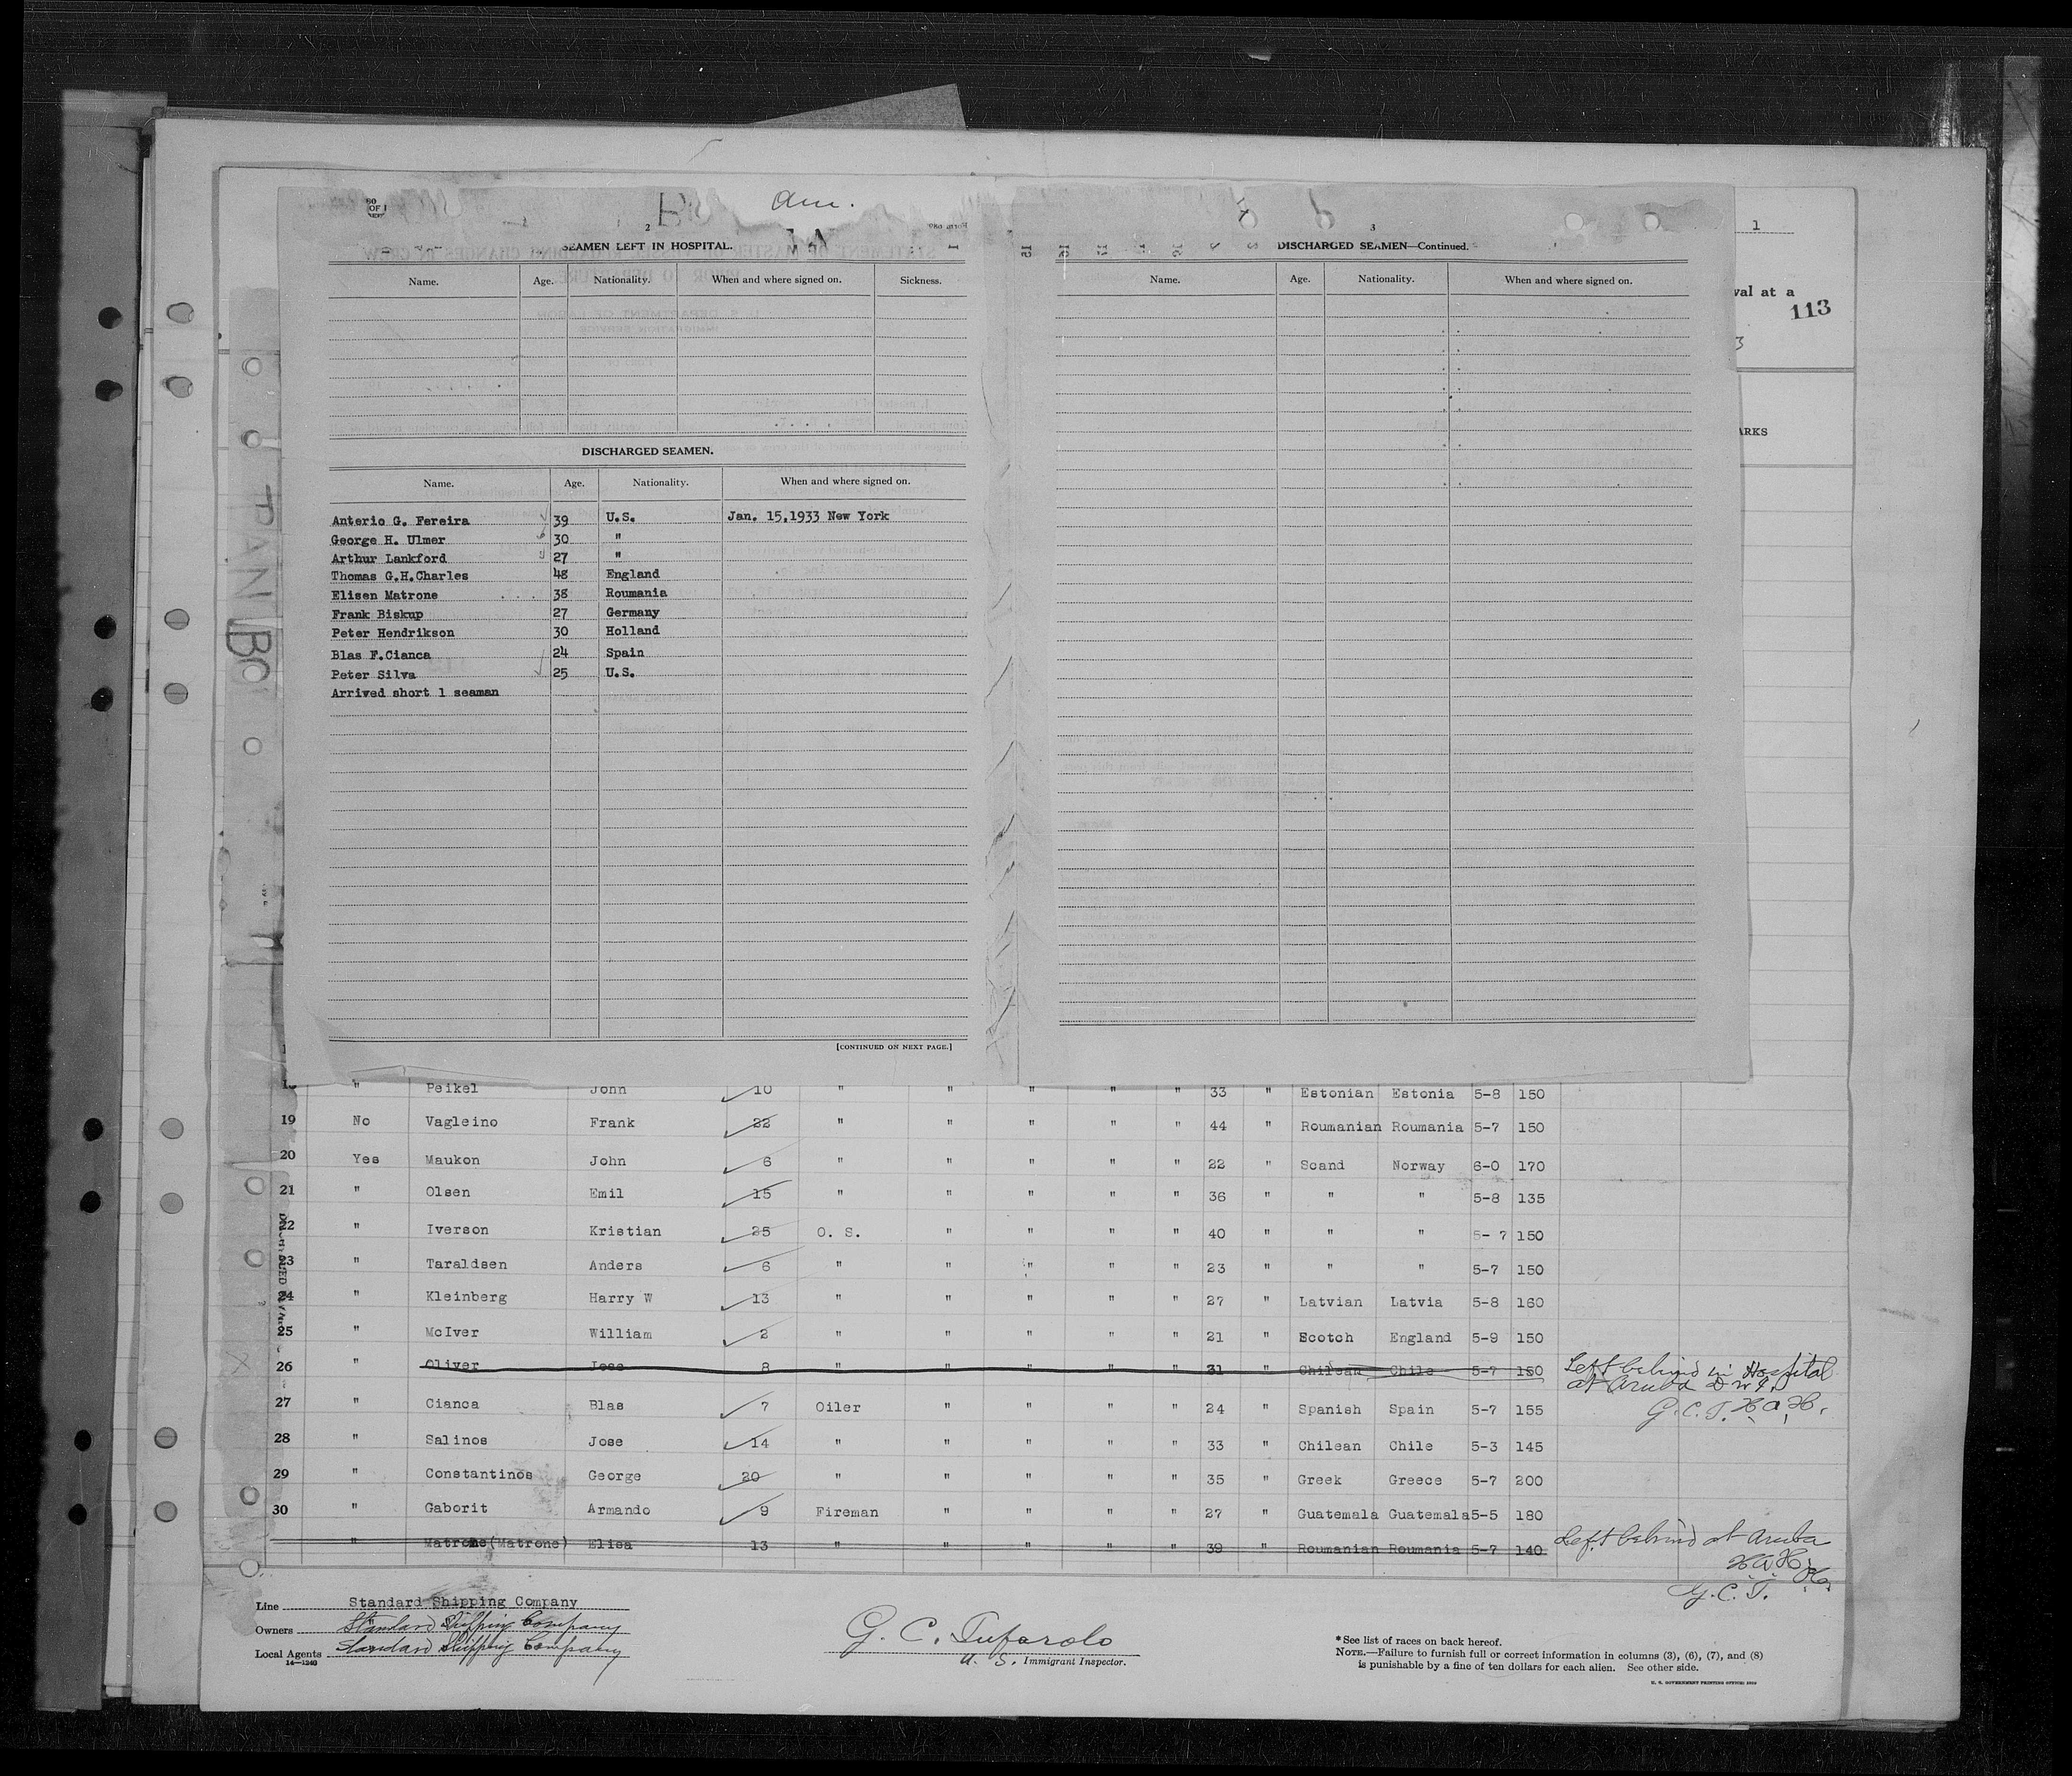 Am.
2
SEAMEN LEFT IN HOSPITAL.
Name. Age. Nationality. When and where signed on. Sickness.
DISCHARGED SEAMEN.
Name. Age. Nationality. When and where signed on.
Anterio G. Fereira 39 U.S. Jan. 15,1933 New York
George H. Ulmer 30 "
Arthur Lankford 27 "
Thomas G.H.Charles 48 England
Elisen Matrone 38 Roumania
Frank Biskup 27 Germany
Peter Hendrikson 30 Holland
Blas F.Cianca 24 Spain
Peter Silva 25 U.S.
Arrived short 1 seaman
[CONTINUED ON NEXT PAGE.]
3
DISCHARGED SEAMEN—Continued.
Name. Age. Nationality. When and where signed on.
1
val at a
113
3
ARKS
" Peikel John 10 " " " " " 33 " Estonian Estonia 5-8 150
19 No Vagleino Frank 22 " " " " " 44 " Roumanian Roumania 5-7 150
20 Yes Maukon John 6 " " " " " 22 " Scand Norway 6-0 170
21 " Olsen Emil 15 " " " " " 36 " " " 5-8 135
22 " Iverson Kristian 25 O. S. " " " " 40 " " " 5-7 150
23 " Taraldsen Anders 6 " " " " " 23 " " " 5-7 150
24 " Kleinberg Harry W 13 " " " " " 27 " Latvian Latvia 5-8 160
25 " McIver William 2 " " " " " 21 " Scotch England 5-9 150
26 " Oliver Jose 8 " " " " " 31 " Chilean Chile 5-7 150 Left behind in Hospital
at Aruba D.W.I.
G.C.T. H.A.H.
27 " Cianca Blas 7 Oiler " " " " 24 " Spanish Spain 5-7 155
28 " Salinos Jose 14 " " " " " 33 " Chilean Chile 5-3 145
29 " Constantinos George 20 " " " " " 35 " Greek Greece 5-7 200
30 " Gaborit Armando 9 Fireman " " " " 27 " Guatemala Guatemala 5-5 180
" Matrone (Matrone) Elisa 13 " " " " " 39 " Roumanian Roumania 5-7 140 Left behind at Aruba
H.A.H.
G.C.T.
Line Standard Shipping Company
Owners Standard Shipping Company
Local Agents Standard Shipping Company
14—1240
G. C. Tufarolo
U. S. Immigrant Inspector.
* See list of races on back hereof.
NOTE.—Failure to furnish full or correct information in columns (3), (6), (7), and (8)
is punishable by a fine of ten dollars for each alien. See other side.
U. S. GOVERNMENT PRINTING OFFICE:
PAN BO